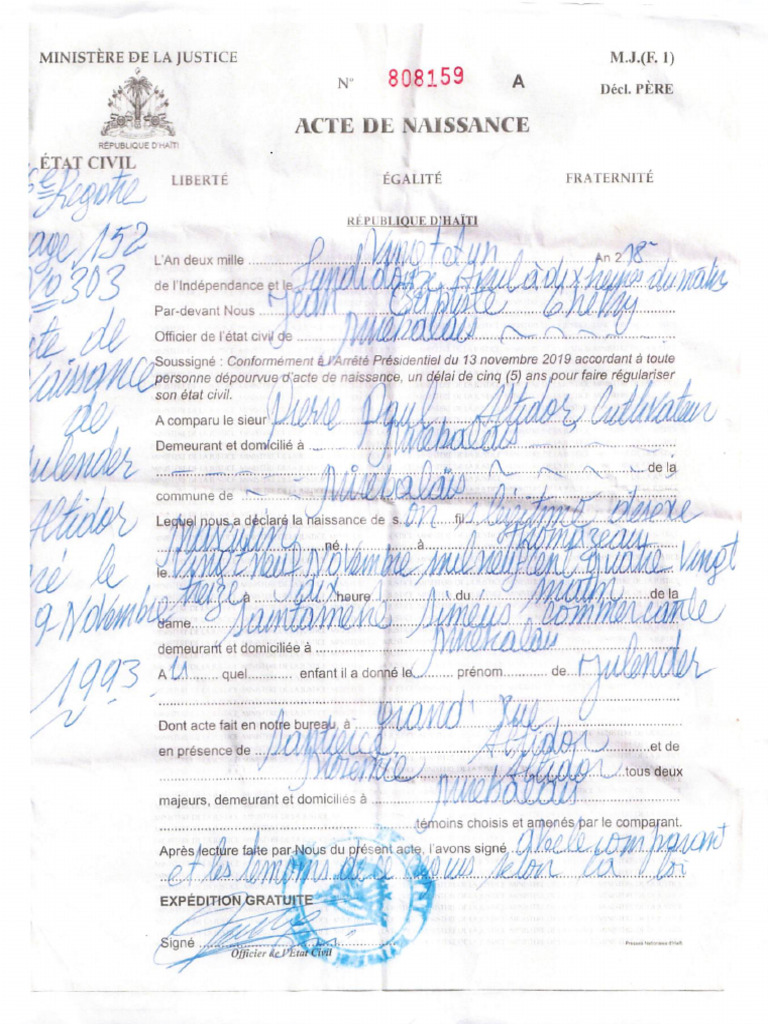 MINISTÈRE DE LA JUSTICE
M.J.(F. 1)
N° 808159 A
Décl. PÈRE
RÉPUBLIQUE D'HAÏTI
ACTE DE NAISSANCE
ÉTAT CIVIL
LIBERTÉ ÉGALITÉ FRATERNITÉ
RÉPUBLIQUE D'HAÏTI
Registre
152
303
de
Naissance
de
Julender
Altidor
né le
9 Novembre
1993
L'An deux mille Vingt et un An 218
de l'Indépendance et le Lundi douze Avril à dix heures du matin
Par-devant Nous Jean Baptiste Thévry
Officier de l'état civil de Mirebalais
Soussigné : Conformément à l'Arrêté Présidentiel du 13 novembre 2019 accordant à toute
personne dépourvue d'acte de naissance, un délai de cinq (5) ans pour faire régulariser
son état civil.
A comparu le sieur Pierre Paul Altidor, Cultivateur
Demeurant et domicilié à Mirebalais
de la
commune de Mirebalais
Lequel nous a déclaré la naissance de s on fil s légitime de sexe
Masculin né à Thomazeau
le Vingt neuf Novembre mil neuf cent quatre vingt
treize à dix heure s du matin de la
dame Saintamene Simeus commercante
demeurant et domiciliée à Mirebalais
A quel enfant il a donné le prénom de Julender
Dont acte fait en notre bureau, à Grand' Rue
en présence de Altidor et de
Altidor tous deux
majeurs, demeurant et domiciliés à Mirebalais
témoins choisis et amenés par le comparant.
Après lecture faite par Nous du présent acte, l'avons signé avec le comparant
et les témoins de ce requis selon la loi
EXPÉDITION GRATUITE
Signé
Officier de l'État Civil
Presses Nationales d'Haïti